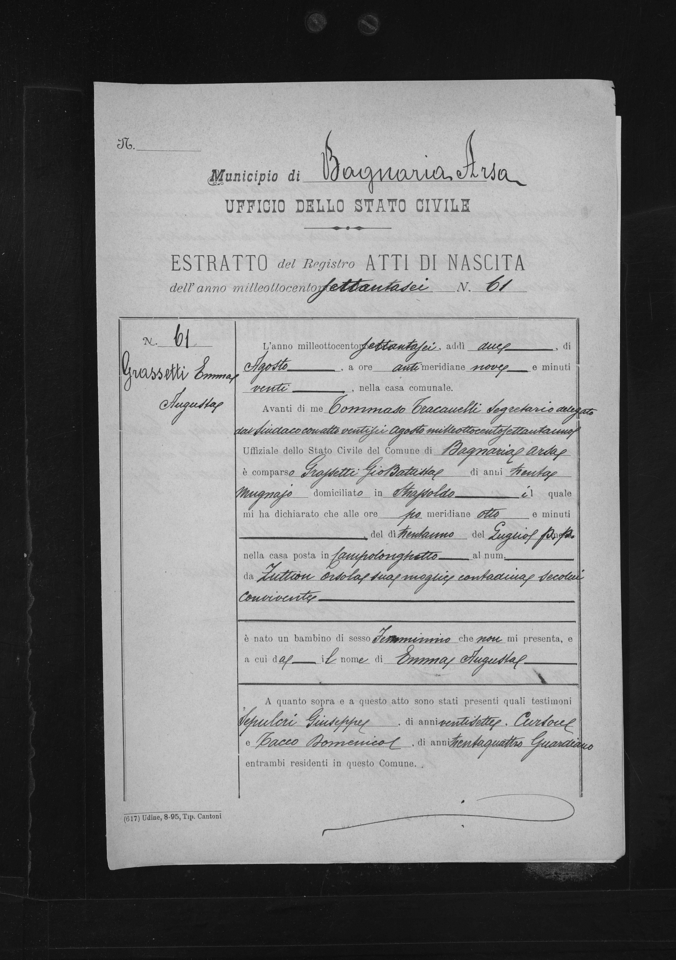 N.
Municipio di Bagnaria Arsa
UFFICIO DELLO STATO CIVILE
ESTRATTO del Registro ATTI DI NASCITA
dell'anno milleottocento settantasei N. 61
N. 61
Grassetti Emma
Augusta
L'anno milleottocento settantasei, addì due, di
Agosto, a ore anti meridiane nove e minuti
venti, nella casa comunale.
Avanti di me Tommaso Tracanelli Segretario delegato
dal Sindaco con atto ventisei Agosto milleottocentosettantauno
Uffiziale dello Stato Civile del Comune di Bagnaria Arsa
è comparso Grassetti Gio Batta di anni trenta
Mugnajo domiciliato in Strassoldo il quale
mi ha dichiarato che alle ore po meridiane otto e minuti
, del dì trentauno del Luglio p. p.
nella casa posta in Campolonghetto al num.
da Zuttion Orsola sua moglie contadina secolui
convivente
è nato un bambino di sesso Femminino che non mi presenta, e
a cui da il nome di Emma Augusta
A quanto sopra e a questo atto sono stati presenti quali testimoni
Sepulcri Giuseppe, di anni ventisette, Cursore
e Tacco Domenico, di anni trentaquattro Guardiano
entrambi residenti in questo Comune.
(617) Udine, 8-95, Tip. Cantoni